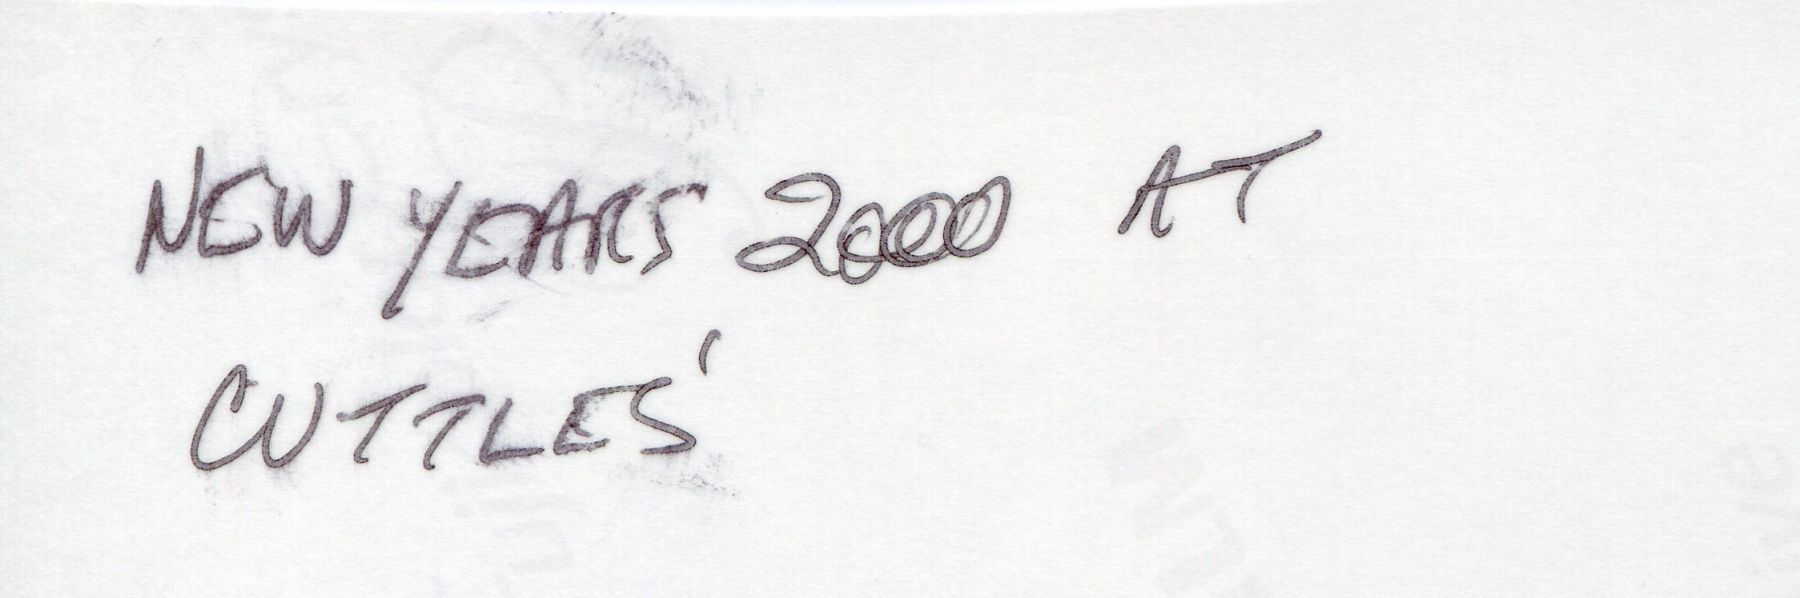 NEW YEARS 2000 AT
CUTTLES'